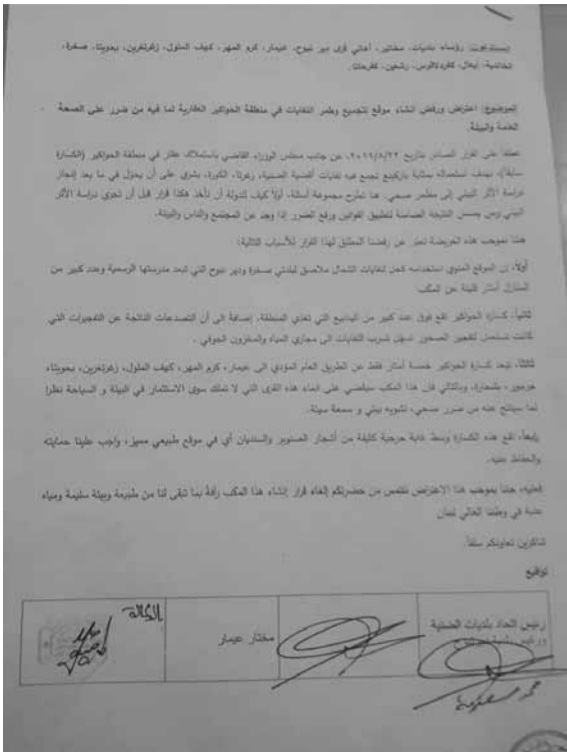 المستدعون: رؤساء بلديات، مخاتير، أهالي قرى دير نبوح، عيمار، كرم المهر، كهف الملول، زغرتغرين، بحويتا، صخرة،
الخالدية، إيعال، كفردلاقوس، رشعين، كفرحاتا.
الموضوع: اعتراض ورفض انشاء موقع لتجميع وطمر النفايات في منطقة الحواكير العقارية لما فيه من ضرر على الصحة
العامة والبيئة.
عطفا على القرار الصادر بتاريخ ٢٠١٩/٨/٢٢، عن جانب مجلس الوزراء القاضي باستملاك عقار في منطقة الحواكير (الكسارة
سابقاً)، بهدف استعماله بمثابة باركينغ تجمع فيه نفايات أقضية الضنية، زغرتا، الكورة، بشري على أن يحوّل في ما بعد إنجاز
دراسة الأثر البيئي إلى مطمر صحي. هنا تطرح مجموعة أسئلة، أولاً كيف للدولة أن تأخذ هكذا قرار قبل أن تجري دراسة الأثر
البيئي ومن يضمن النتيجة الضامنة لتطبيق القوانين ورفع الضرر إذا وجد عن المجتمع والناس والبيئة.
جئنا بموجب هذه العريضة نعبّر عن رفضنا المطلق لهذا القرار للأسباب التالية:
أولاً، إن الموقع المنوي استخدامه كحل لنفايات الشمال ملاصق لبلدتي صخرة ودير نبوح التي تبعد مدرستها الرسمية وعدد كبير من
المنازل أمتار قليلة عن المكب
ثانياً، كسارة الحواكير تقع فوق عدد كبير من الينابيع التي تغذي المنطقة. إضافة إلى أن التصدعات الناتجة عن التفجيرات التي
كانت تستعمل لتفجير الصخور تسهّل تسرب النفايات الى مجاري المياه والمخزون الجوفي .
ثالثاً، تبعد كسارة الحواكير خمسة أمتار فقط عن الطريق العام المؤدي الى عيمار، كرم المهر، كهف الملول، زغرتغرين، بحويتا،
حرمور، بشحارة، وبالتالي فان هذا المكب سيقضي على انماء هذه القرى التي لا تملك سوى الاستثمار في البيئة و السياحة نظرا
لما سينتج عنه من ضرر صحي، تشويه بيئي و سمعة سيئة.
رابعاً، تقع هذه الكسارة وسط غابة حرجية كثيفة من أشجار الصنوبر والسنديان أي في موقع طبيعي مميز، واجب علينا حمايته
والحفاظ عليه.
فعليه، جئنا بموجب هذا الاعتراض نلتمس من حضرتكم إلغاء قرار إنشاء هذا المكب رأفة بما تبقى لنا من طبيعة وبيئة سليمة ومياه
عذبة في وطننا الغالي لبنان
شاكرين تعاونكم سلفاً.
تواقيع
رئيس اتحاد بلديات الضنية
مختار عيمار